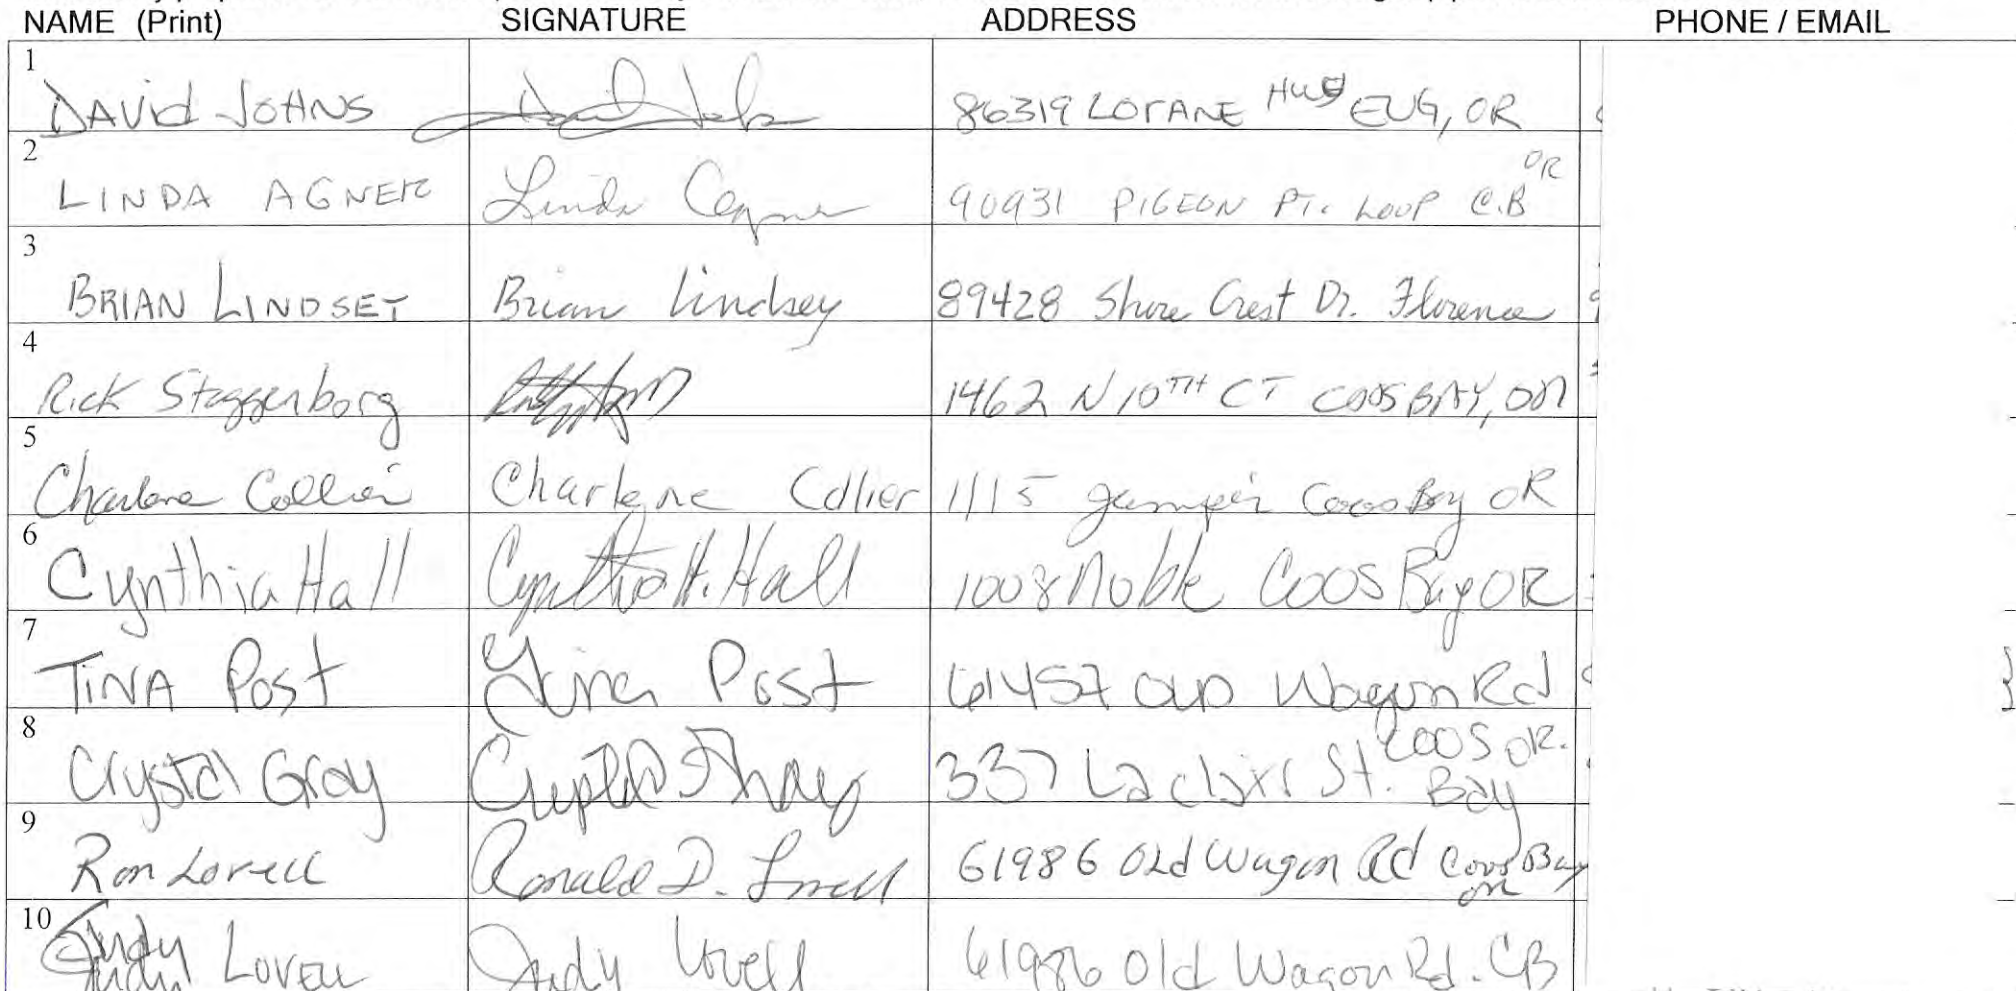 NAME (Print) SIGNATURE ADDRESS PHONE / EMAIL
1
DAVid JOHNS 86319 LORANE Hwy EUG, OR
2
LINDA AGNER Linda 90931 PIGEON PT. LOOP C.B OR
3
BRIAN LINDSEY Brian Lindsey 89428 Shore Crest Dr. Florence
4
Rick Staggenborg 1462 N 10TH CT COOS BAY, OR
5
Charlene Collier Charlene Collier 1115 Coos Bay OR
6
Cynthia Hall Cynthia H. Hall 1008 Noble Coos Bay OR
7
TINA Post Tina Post 61457 OLD Wagon Rd
COOS OR.
8
Crystal Gray Crystal Gray 337 LaClair St. Bay
9
Ron Lovell Ronald D. Lovell 61986 Old Wagon Rd Coos Bay
OR
10
Judy Lovell Judy Lovell 61986 Old Wagon Rd. CB